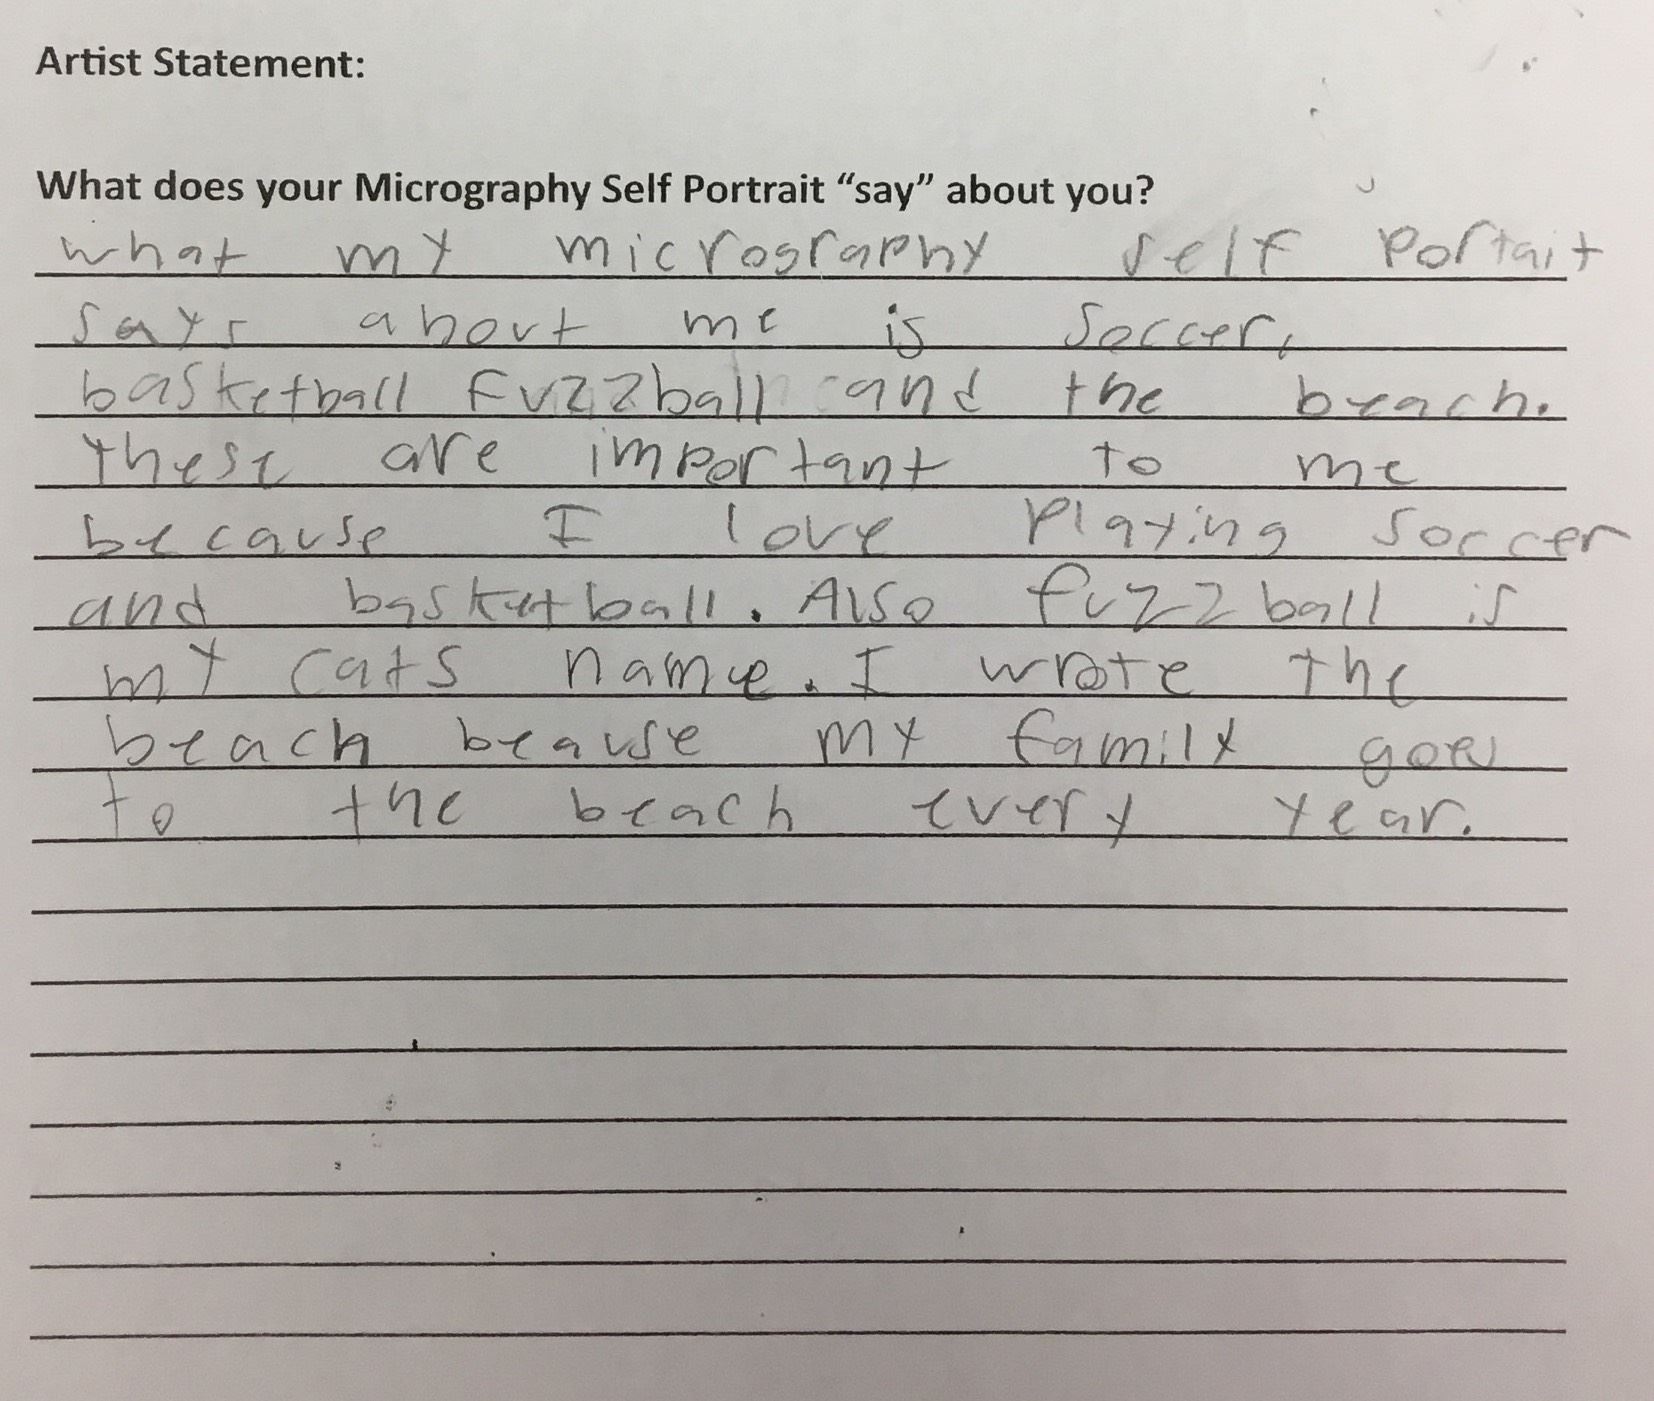 Artist Statement:
What does your Micrography Self Portrait “say” about you?
what my micrography self portait
says about me is Soccer,
basketball fuzzball and the beach.
these are important to me
because I love Playing Soccer
and basketball. Also fuzzball is
my cats name. I wrote the
beach beause my family goes
to the beach every year.